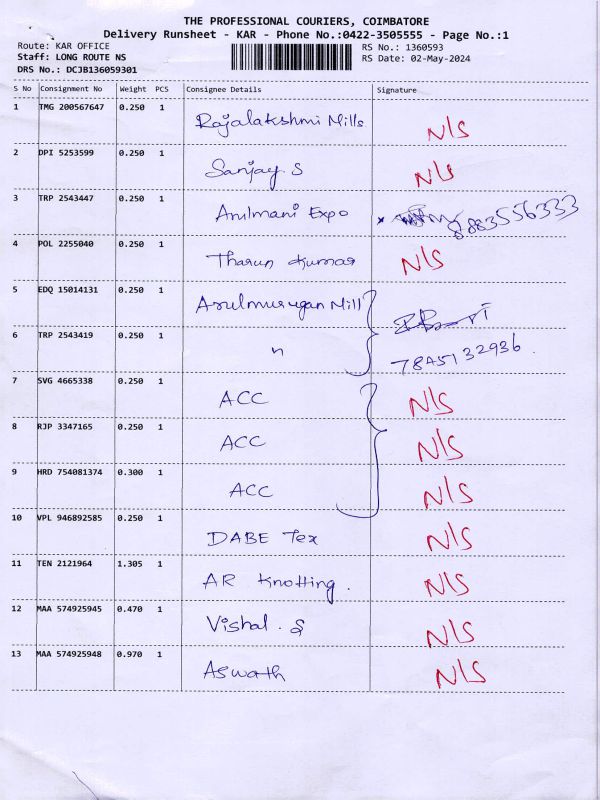 THE PROFESSIONAL COURIERS, COIMBATORE
Delivery Runsheet - KAR - Phone No.:0422-3505555 - Page No.:1
Route: KAR OFFICE RS No.: 1360593
Staff: LONG ROUTE NS RS Date: 02-May-2024
DRS No.: DCJB136059301
S No Consignment No Weight PCS Consignee Details Signature
1 TMG 200567647 0.250 1 Rajalakshmi Mills N/S
2 DPI 5253599 0.250 1 Sanjay. S N/S
3 TRP 2543447 0.250 1 Arulmani Expo 8883556333
4 POL 2255040 0.250 1 Tharun Kumar N/S
5 EDQ 15014131 0.250 1 Arulmurugan Mill
6 TRP 2543419 0.250 1 〃 7845132936.
7 SVG 4665338 0.250 1 ACC N/S
8 RJP 3347165 0.250 1 ACC N/S
9 HRD 754081374 0.300 1 ACC N/S
10 VPL 946892585 0.250 1 DABE Tex N/S
11 TEN 2121964 1.305 1 AR Knotting. N/S
12 MAA 574925945 0.470 1 Vishal. S N/S
13 MAA 574925948 0.970 1 Aswath N/S